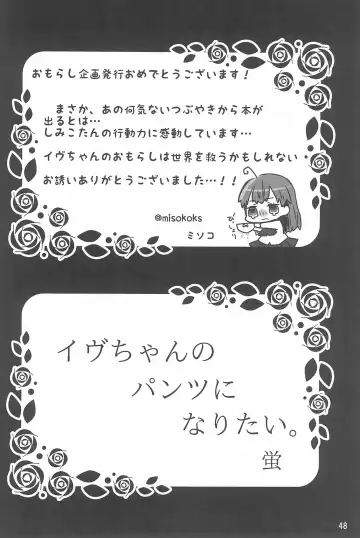 おもらし企画発行おめでとうございます！
まさか、あの何気ないつぶやきから本が
出るとは…
しみこたんの行動力に感動しています…
イヴちゃんのおもらしは世界を救うかもしれない
お誘いありがとうございました…！！
@misokoks
ミソコ
びっしょり
イヴちゃんの
パンツに
なりたい。
蛍
48